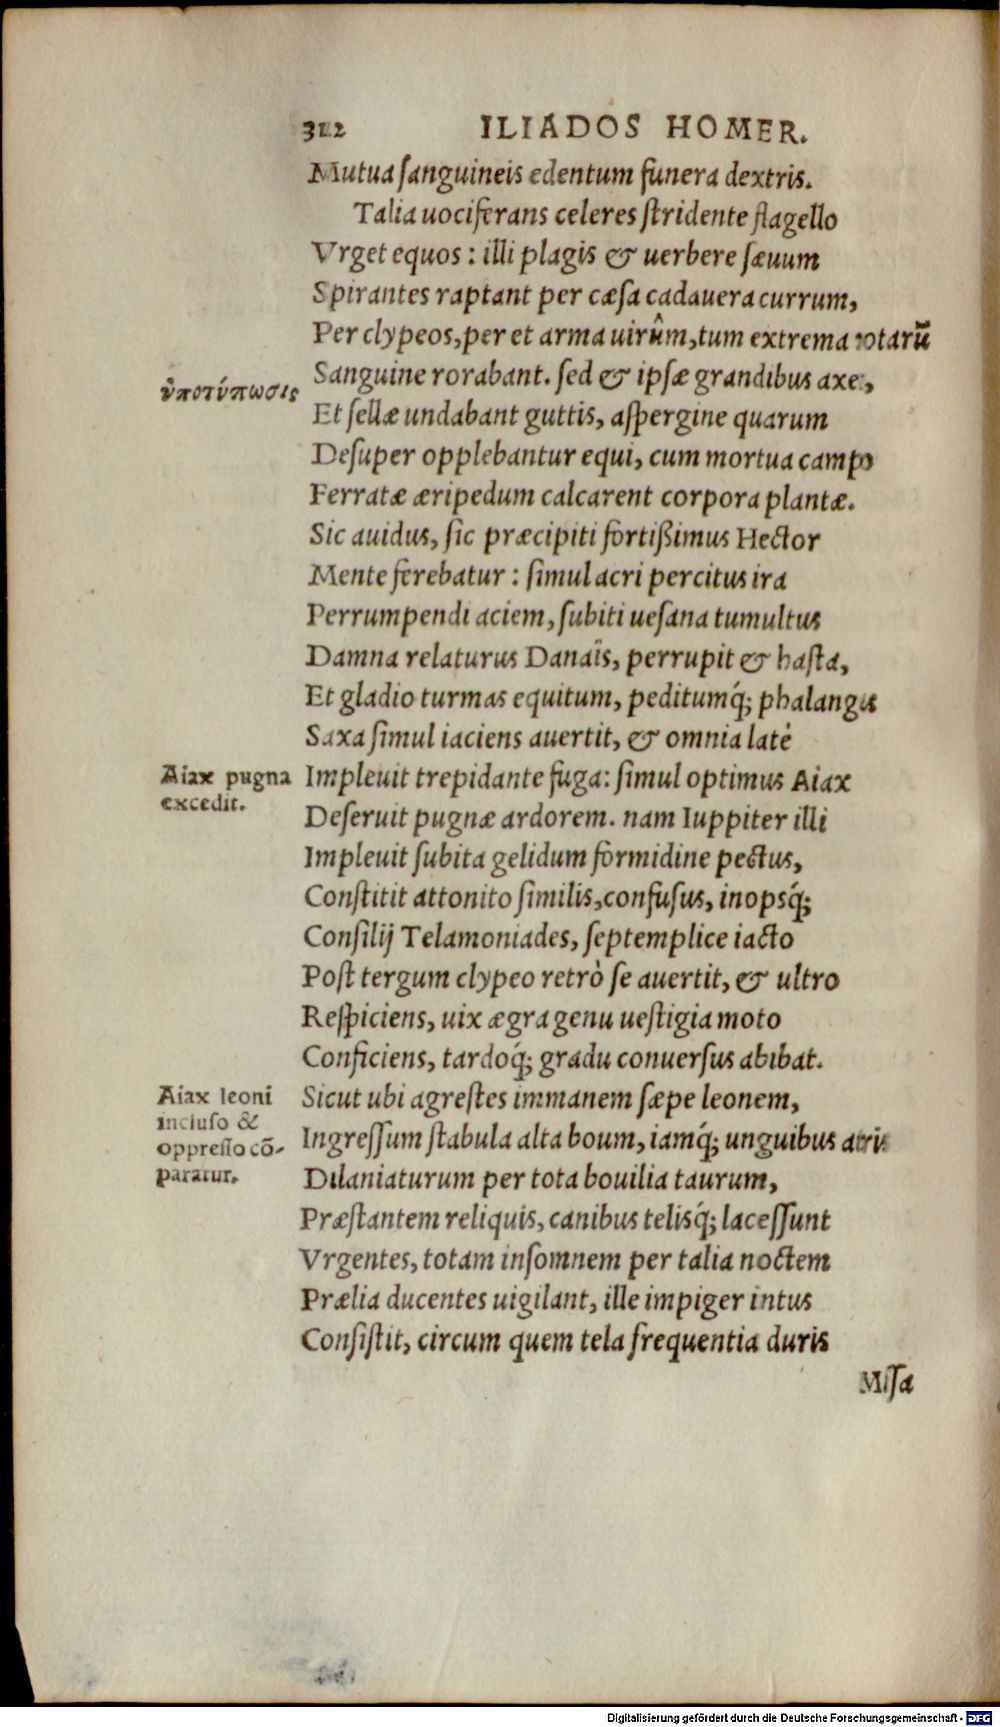 312 ILIADOS HOMER.
Mutua sanguineis edentum funera dextris.
Talia uociferans celeres stridente flagello
Vrget equos : illi plagis & uerbere sæuum
Spirantes raptant per cæsa cadauera currum,
Per clypeos, per et arma uirûm, tum extrema rotarū
ὑποτύπωσις
Sanguine rorabant. sed & ipsæ grandibus axe,
Et sellæ undabant guttis, aspergine quarum
Desuper opplebantur equi, cum mortua campo
Ferratæ æripedum calcarent corpora plantæ.
Sic auidus, sic præcipiti fortißimus Hector
Mente ferebatur : simul acri percitus ira
Perrumpendi aciem, subiti uesana tumultus
Damna relaturus Danaîs, perrupit & hasta,
Et gladio turmas equitum, peditumq́; phalanges
Saxa simul iaciens auertit, & omnia latè
Aiax pugna
excedit.
Impleuit trepidante fuga: simul optimus Aiax
Deseruit pugnæ ardorem. nam Iuppiter illi
Impleuit subita gelidum formidine pectus,
Constitit attonito similis, confusus, inopsq́;
Consilij Telamoniades, septemplice iacto
Post tergum clypeo retrò se auertit, & ultro
Respiciens, uix ægra genu uestigia moto
Conficiens, tardoq́; gradu conuersus abibat.
Aiax leoni
incluso &
oppresso cō-
paratur.
Sicut ubi agrestes immanem sæpe leonem,
Ingressum stabula alta boum, iamq́; unguibus atris
Dilaniaturum per tota bouilia taurum,
Præstantem reliquis, canibus telisq́; lacessunt
Vrgentes, totam insomnem per talia noctem
Prælia ducentes uigilant, ille impiger intus
Consistit, circum quem tela frequentia duris
Missa
Digitalisierung gefördert durch die Deutsche Forschungsgemeinschaft - DFG